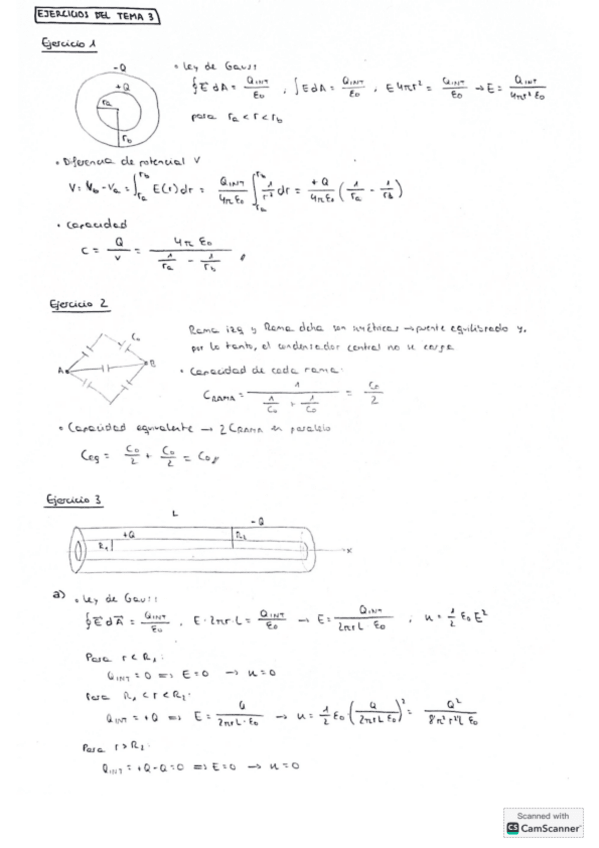 EJERCICIOS DEL TEMA 3
Ejercicio 1
-Q
+Q
ra
rb
• Ley de Gauss
∮ E dA = QINT/ε0 , ∫ E dA = QINT/ε0 , E 4πr² = QINT/ε0 → E = QINT/4πr² ε0
para ra < r < rb
• Diferencia de potencial V
V = Vb - Va = ∫ra^rb E(r) dr = QINT/4πε0 ∫ra^rb 1/r² dr = +Q/4πε0 (1/ra - 1/rb)
• Capacidad
C = Q/V = 4π ε0/(1/ra - 1/rb)
Ejercicio 2
C0
A
B
Rama izq y Rama dcha son simétricas → puente equilibrado y,
por lo tanto, el condensador central no se carga
• Capacidad de cada rama:
CRAMA = 1/(1/C0 + 1/C0) = C0/2
• Capacidad equivalente → 2 CRAMA en paralelo
Ceq = C0/2 + C0/2 = C0
Ejercicio 3
L
-Q
+Q
R1
R2
x
a) • Ley de Gauss:
∮ E dA = QINT/ε0 , E·2πr·L = QINT/ε0 → E = QINT/2πrL ε0 ; u = 1/2 ε0 E²
Para r < R1:
QINT = 0 => E = 0 → u = 0
Para R1 < r < R2:
QINT = +Q => E = Q/2πrL·ε0 → u = 1/2 ε0 (Q/2πrL ε0)² = Q²/8π² r² L² ε0
Para r > R2:
QINT = +Q - Q = 0 => E = 0 → u = 0
Scanned with
CS CamScanner